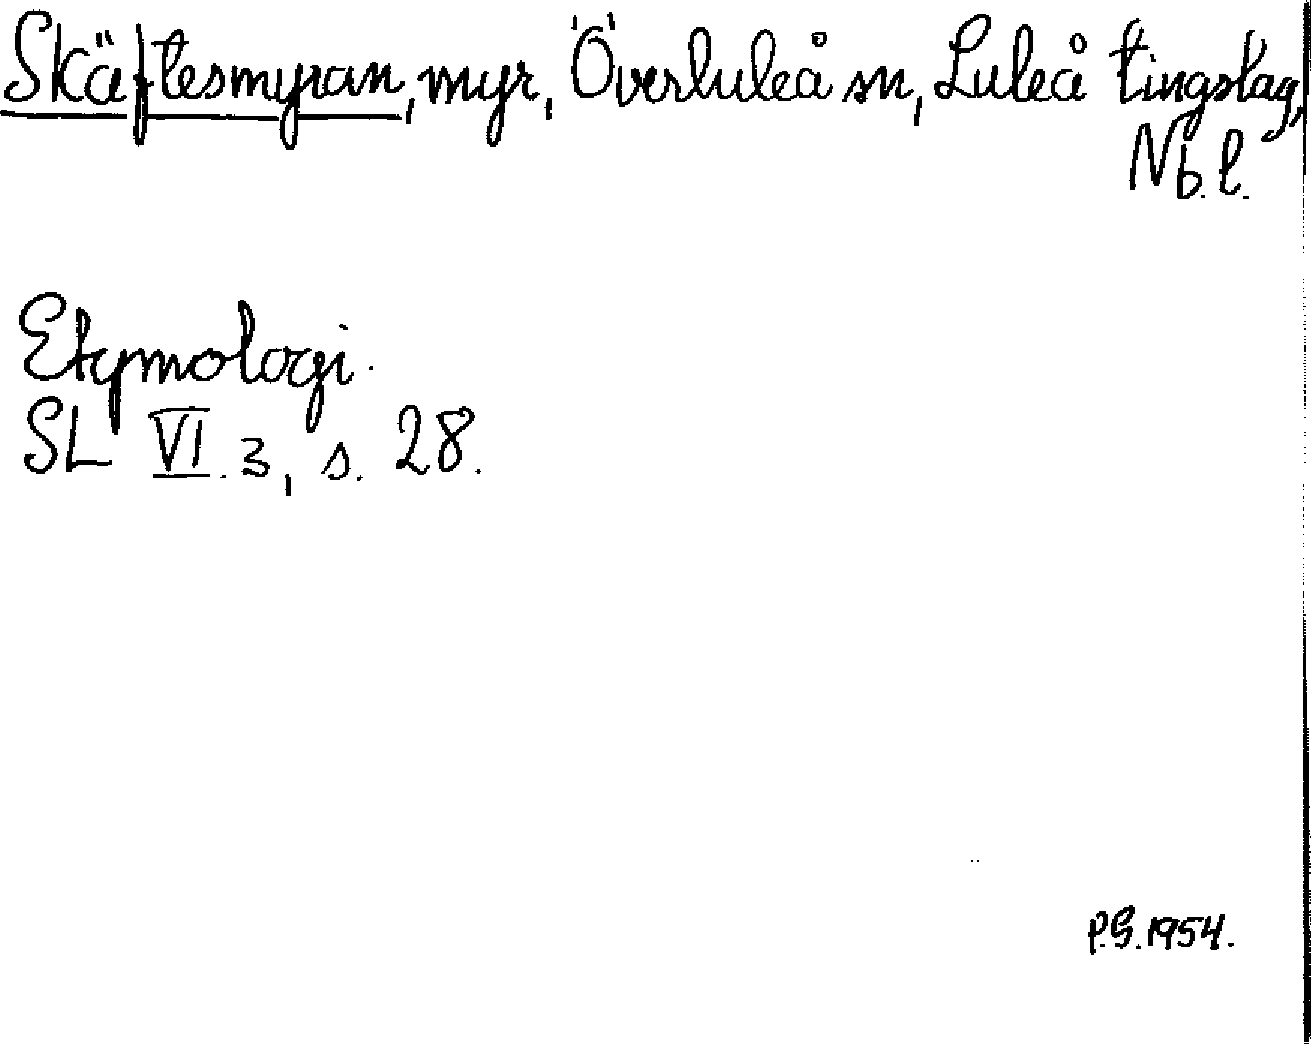 Skäftesmyran, myr, Överluleå sn, Luleå tingslag,
Nb. l.
Etymologi.
SL VI. 3, s. 28.
P.G. 1954.